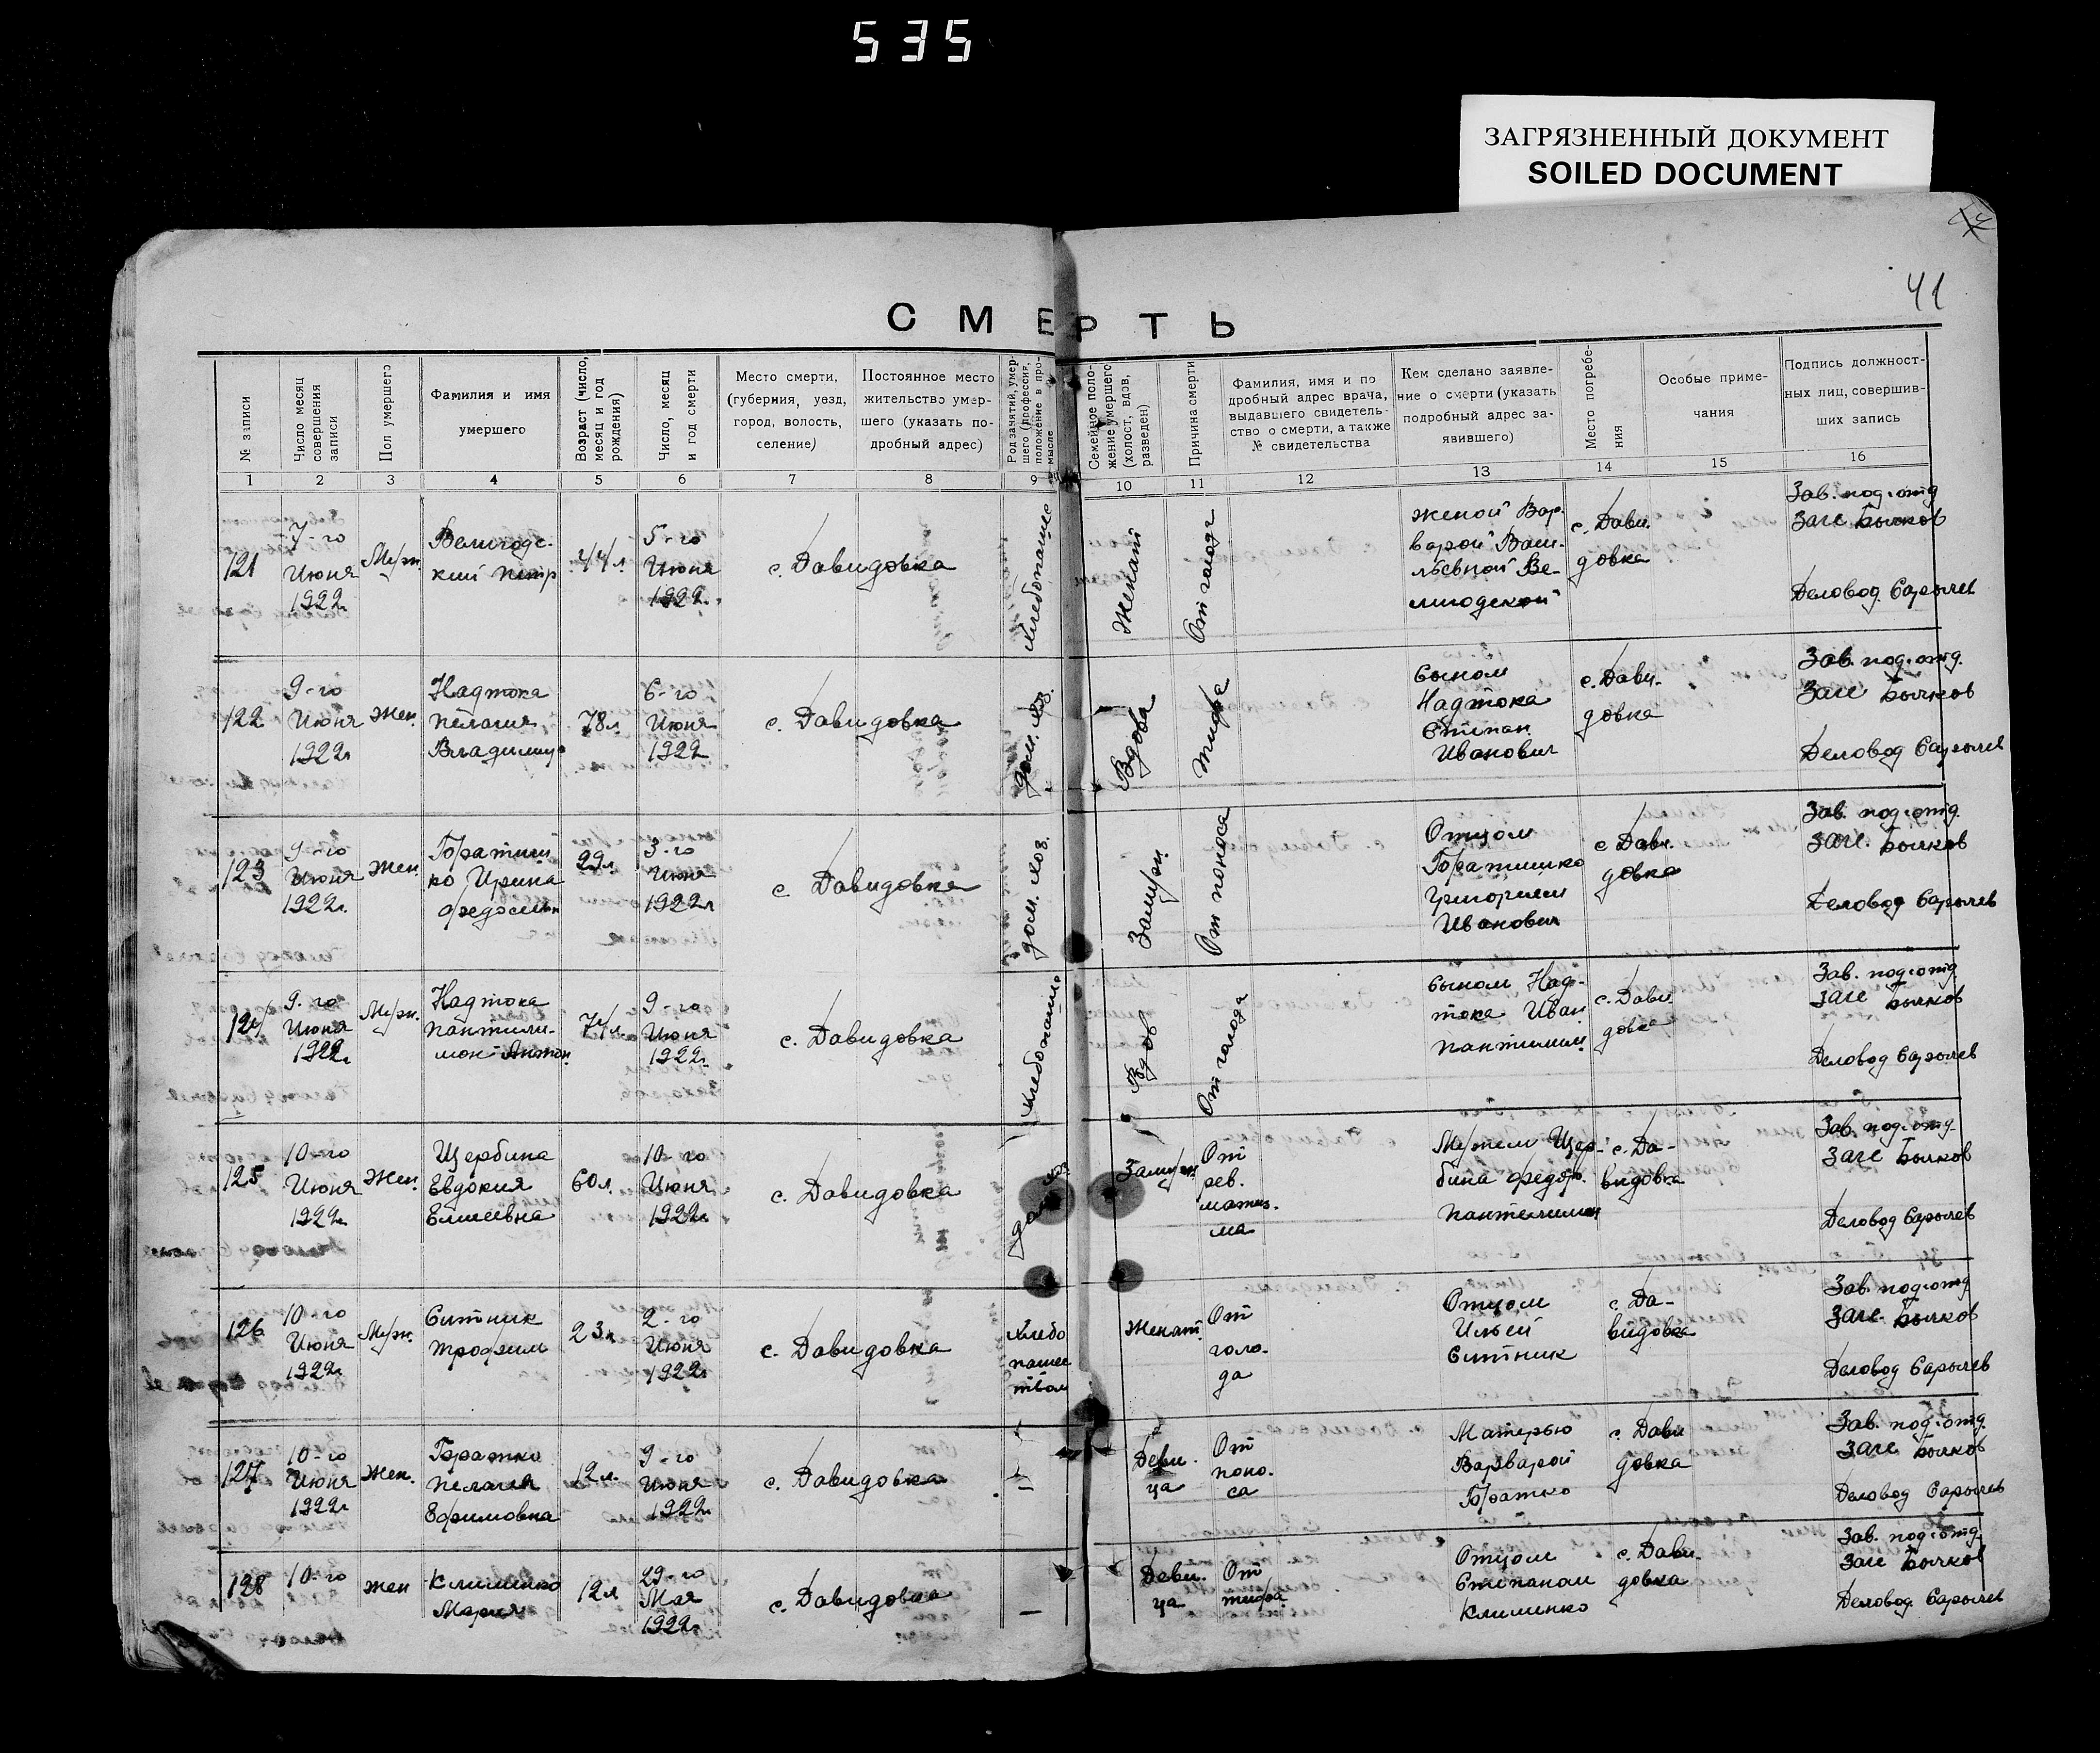 535
ЗАГРЯЗНЕННЫЙ ДОКУМЕНТ
SOILED DOCUMENT
41
СМЕРТЬ
№ записи
Число месяц
совершения
записи
Пол умершего
Фамилия и имя
умершего
Возраст (число,
месяц и год
рождения)
Число, месяц
и год смерти
Место смерти,
(губерния, уезд,
город, волость,
селение)
Постоянное место
жительство умер-
шего (указать по-
дробный адрес)
Род занятий, умер-
шего (профессия,
положение в про-
мысле
Семейное поло-
жение умершего
(холост, вдов,
разведен)
Причина смерти
Фамилия, имя и по
дробный адрес врача,
выдавшего свидетель-
ство о смерти, а также
№ свидетельства
Кем сделано заявле-
ние о смерти (указать
подробный адрес за-
явившего)
Место погребе-
ния
Особые приме-
чания
Подпись должност-
ных лиц, совершив-
ших запись
1 2 3 4 5 6 7 8 9 10 11 12 13 14 15 16
121
7-го
Июня
1922
Муж.
Велигодс-
кий Петр
44л.
5-го
Июня
1922.
с. Давидовка
Женат
От голода
женой Вар-
варой Васи-
льевной Ве-
лигодской
с. Дави-
довка
Зав. под.отд
Загс Бычков
Деловод Сарычев
122
9-го
Июня
1922г
Жен.
Надтока
Пелагия
Владимир
78л
6-го
Июня
1922
с. Давидовка
дом. хоз.
Вдова
Тифа
Сыном
Надтока
Степан
Иванович
с. Дави-
довка
Зав. под.отд.
Загс Бычков
Деловод Сарычев
123
9-го
Июня
1922г.
Жен.
Ирина
29л.
3-го
Июня
1922г
с. Давидовка
дом. хоз.
Замуж
От поноса
Отцом
Иванович
с Дави-
довка
Зав. под.отд.
Загс. Бычков
Деловод Сарычев
124
9-го
Июня
1922г
Муж.
Надтока
Пантили-
мон Антон
74л.
9-го
Июня
1922г.
с. Давидовка
Вдов
От голода
Сыном Над-
тока Иван
Пантилим
с. Дави
довка
Зав. под.отд
Загс Бычков
Деловод Сарычев
125
10-го
Июня
1922г.
Жен.
Щербина
Евдокия
Елисеевна
60л.
10-го
Июня
1922г.
с. Давидовка
Замуж
От
рев.
матиз-
ма
Мужем Щер-
бина Федор.
Пантелимон
с. Да-
видовка
Зав. под.отд.
Загс Бычков
Деловод Сарычев
126
10-го
Июня
1922г.
Муж.
Ситник
Трофим
23л
2-го
Июня
1922г.
с. Давидовка
Хлебо
Женат.
От
голо-
да
Отцом
Ильей
Ситник
с. Да-
видовка
Зав. под.отд.
Загс. Бычков
Деловод Сарычев
127
10-го
Июня
1922г
Жен.
Пелагея
Ефимовна
12л.
9-го
Июня
1922г.
с. Давидовка
—
Деви-
ца
От
поно-
са
Матерью
Варварой
с. Дави
довка
Зав. под.отд.
Загс Бычков
Деловод Сарычев
128
10-го
Жен
Клименко
Мария
12л
29-го
Мая
1922г.
с. Давидовка
—
Деви-
ца
От
тифа
Отцом
Степаном
Клименко
с. Дави-
довка
Зав. под.отд.
Загс Бычков
Деловод. Сарычев